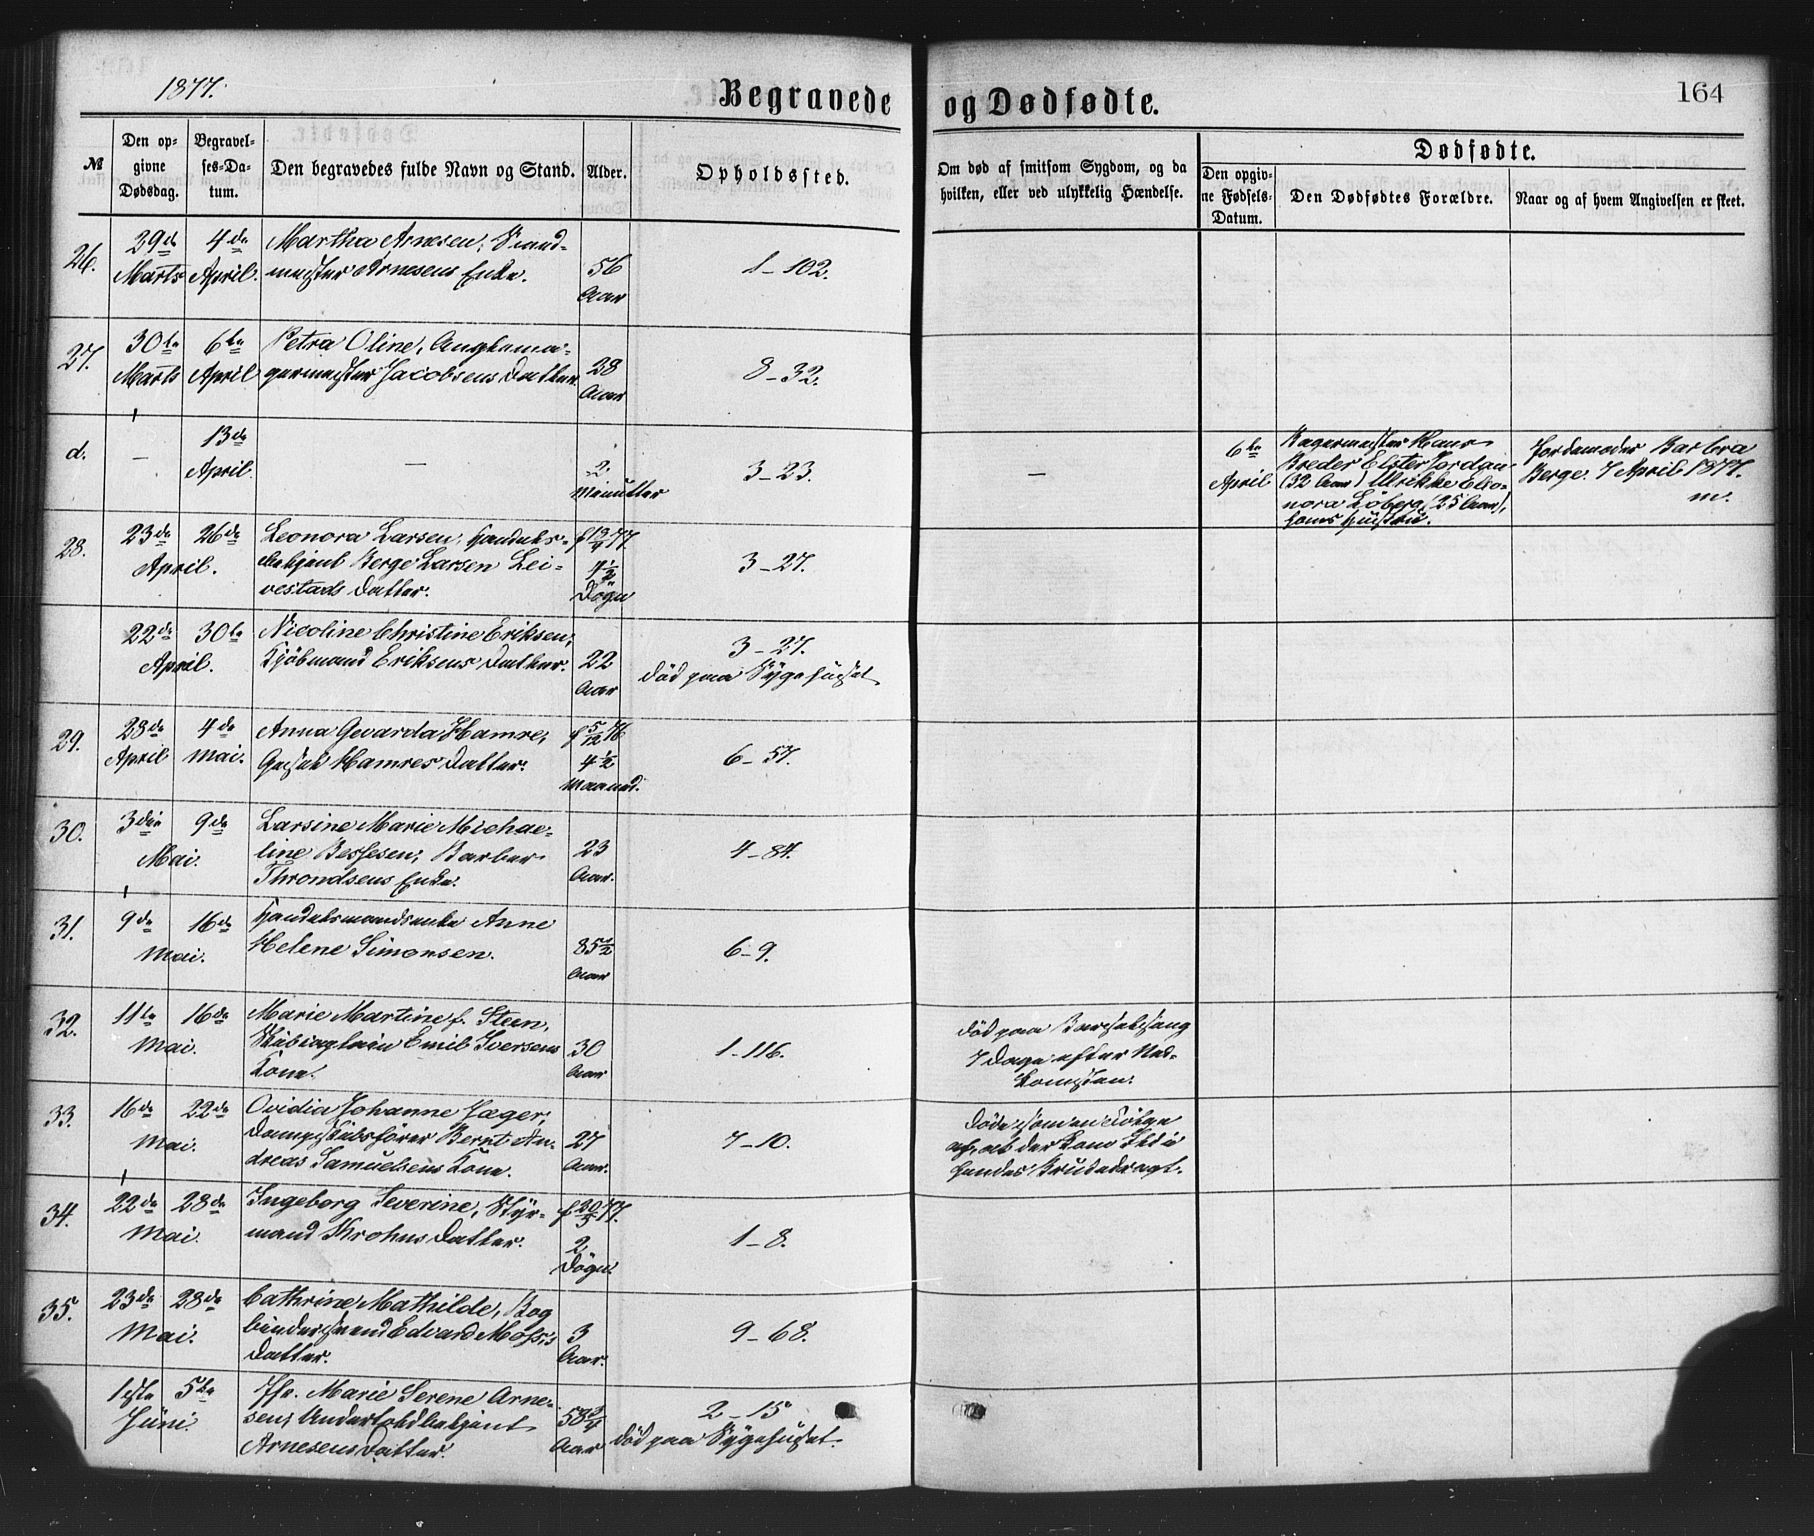 1877.
Begravede og Dødfødte.
164
№
Den op-
givne
Dødsdag.
Begravel-
ses-Da-
tum.
Den begravedes fulde Navn og Stand.
Alder.
Opholdssted.
Om død af smitsom Sygdom, og da
hvilken, eller ved ulykkelig Hændelse.
Dødfødte.
Den opgiv-
ne Fødsels-
Datum.
Den Dødfødtes Forældre.
Naar og af hvem Angivelsen er skeet.
26.
29de
Marts
4de
April.
Martha Arnesen,
Arnesens Enke.
56
Aar
1-102.
27.
30te
Marts
6te
April
Petra Oline,
Jacobsens Datter
28
Aar
8-32.
d.
-
13de
April.
-
2
Minutter
3-23.
-
6te
April
Bagermester Hans
Breder Elster Jordan
(32 Aar) Ulrikke Eleo-
nora Löberg, (25 Aar),
hans Hustru.
Jordemoder Barbra
Berge. 7 April 1877.
m.
28.
23de
26de
April.
Leonora Larsen, Handels-
betjent Berge Larsen Lei-
vestads Datter.
f 19/4 77
4 1/2
Døgn
3-27.
22de
30te
April.
Nicoline Christine Eriksen,
Kjöbmand Eriksens Datter.
22
Aar
3-27.
död paa Sygehuset
29.
28de
April
4de
Mai.
Anna Gevarda Hamre,
Hamres Datter.
f 5/12 76
4 1/2
Maaned.
6-57.
30.
3die
9de
Mai.
Larsine Marie Michae-
line Bessesen, Barber
Throndsens Enke.
23
Aar.
4-84.
31.
9de
16de
Mai.
Handelsmandsenke Anne
Helene Simonsen.
85 1/2
Aar
6-9.
32.
11te
16de
Mai.
Marie Martine f. Steen,
Emil Iversens
Kone.
30
Aar
1-116.
död paa Barselseng
7 Dage efter Ned-
komsten.
33.
16de
22de
Mai.
Ovidia Johanne Jæger,
Dampskibsförer Bernt An-
dreas Samuelsens Kone.
27
Aar.
7-10.
Döde som en Fölge
af, at der kom Ild i
hendes Brudedragt.
34.
22de
28de
Mai.
Ingeborg Severine, Styr-
mand Krohns Datter.
f 20/5 77.
2
Dögn.
1-8.
35.
23de
28de
Mai.
Cathrine Mathilde, Bog
bindersvend Edvard Moss's
Datter.
3
Aar.
9-68.
1ste
5te
Juni.
Jfr. Marie Serene Arne-
sen, Undertoldbetjent
Arnesens Datter.
58 3/4
Aar
2-15
död paa Sygehuset.